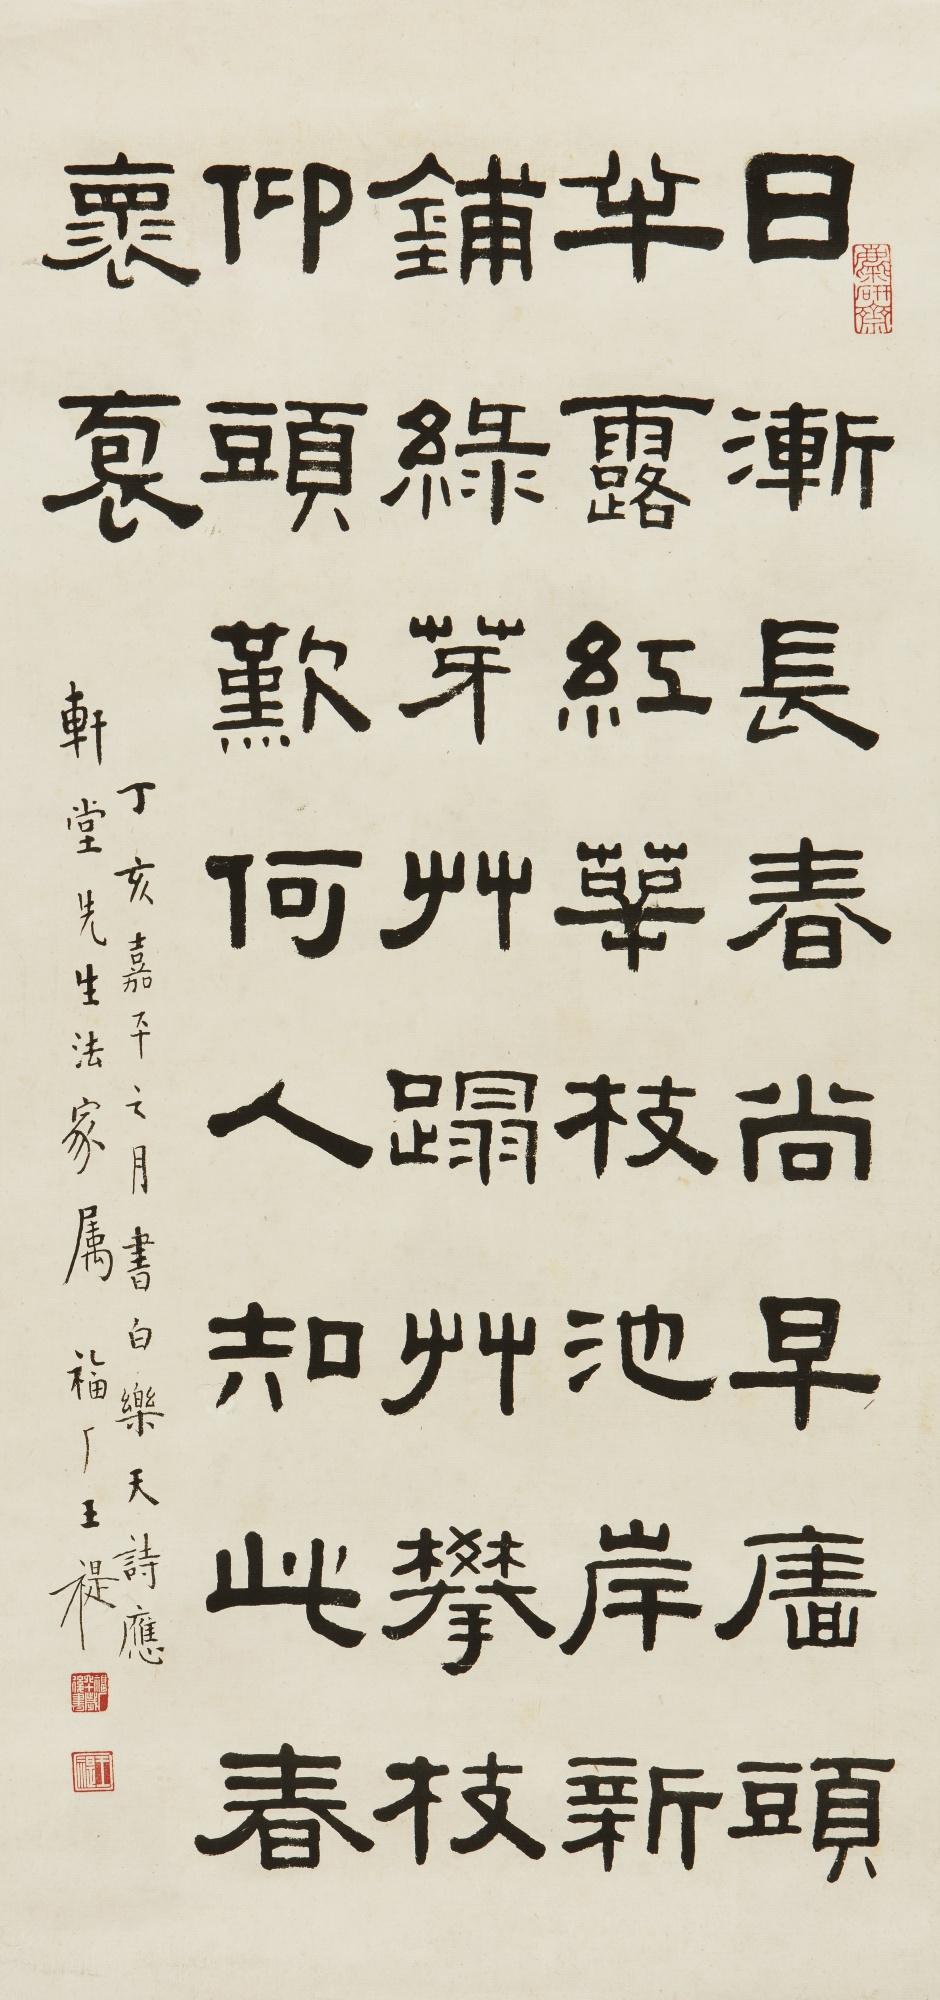 日漸長春尚早廧頭
半露紅華枝池岸新
鋪綠芽艸蹋艸攀枝
仰頭歎何人知此春
褱袌
丁亥嘉平之月書白樂天詩應
軒堂先生法家属 福厂王禔
麋研齋
王禔